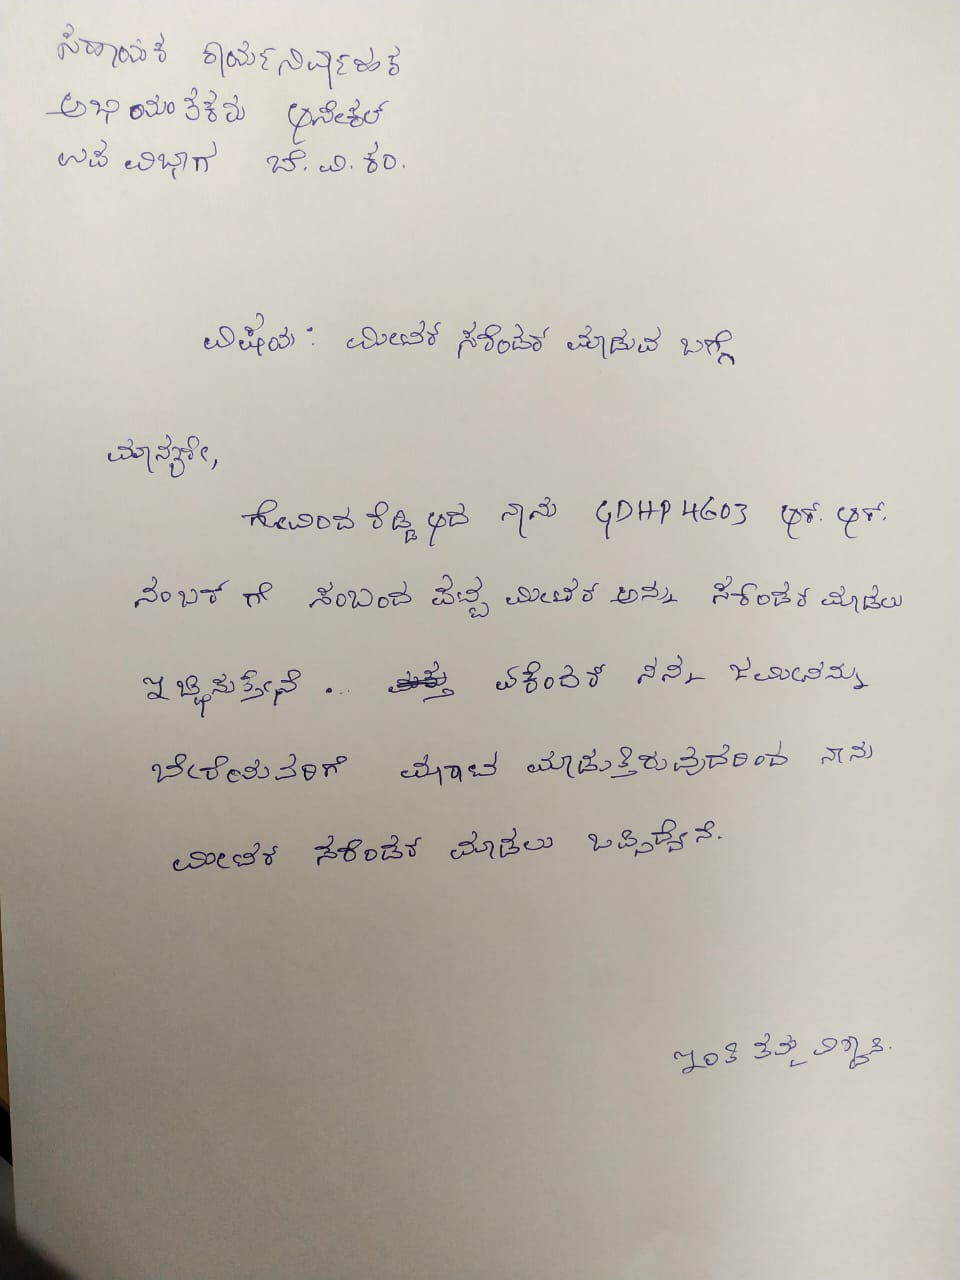 ಸಹಾಯಕ ಕಾರ್ಯನಿರ್ವಾಹಕ
ಅಭಿಯಂತಕರು ಆನೇಕಲ್
ಉಪ ವಿಭಾಗ ಬೆ. ವಿ. ಕಂ.
ವಿಷಯ: ಮೀಟರ ಸರೆಂಡರ ಮಾಡುವ ಬಗ್ಗೆ
ಮಾನ್ಯರೇ,
ಗೋವಿಂದ ರೆಡ್ಡಿ ಆದ ನಾನು GDHP4603 ಆರ್. ಆರ್.
ನಂಬರ್ ಗೆ ಸಂಬಂದ ಪಟ್ಟ ಮೀಟರ ಅನ್ನು ಸರೆಂಡರ ಮಾಡಲು
ಇಚ್ಛಿಸುತ್ತೇನೆ ... ಏಕೆಂದರೆ ನನ್ನ ಜಮೀನನ್ನು
ಬೇರೆಯವರಿಗೆ ಮಾರಾಟ ಮಾಡುತ್ತಿರುವುದರಿಂದ ನಾನು
ಮೀಟರ ಸರೆಂಡರ ಮಾಡಲು ಒಪ್ಪಿದ್ದೇನೆ.
ಇಂತಿ ತಮ್ಮ ವಿಶ್ವಾಸಿ.